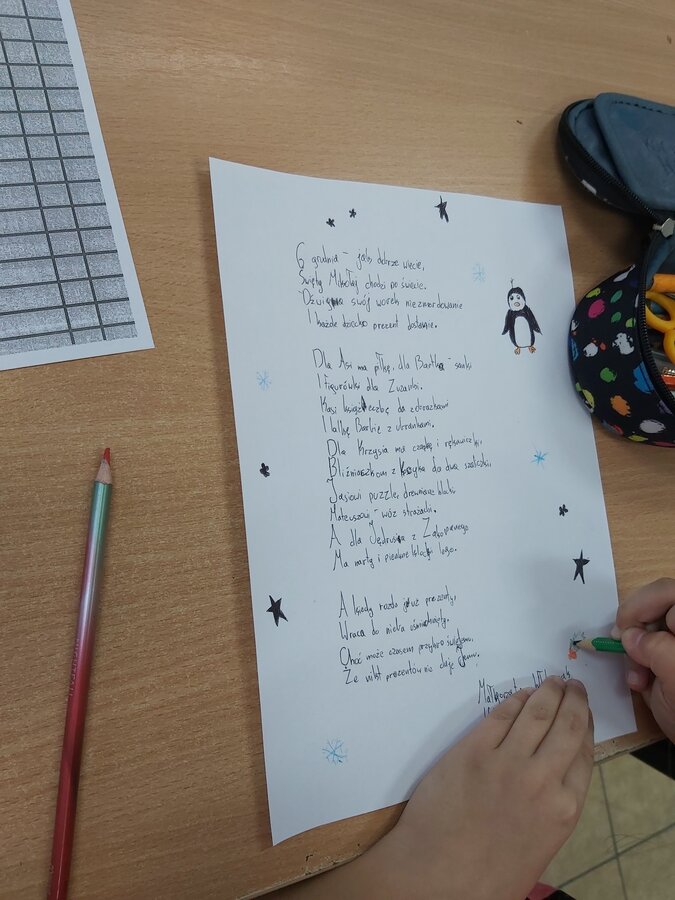 6 grudnia - jak dobrze wiecie,
Święty Mikołaj chodzi po świecie.
Dźwiga swój worek niezmordowanie
I każde dziecko prezent dostanie.
Dla Asi ma piłkę, dla Bartka - sanki
I figurkę dla Zuzanki.
Kasi książeczkę da z obrazkami
I lalkę Barbie z ubrankami.
Dla Krzysia ma czapkę i rękawiczki,
Bliźniaczkom z Kłycka da dwa szaliczki,
Jasiowi puzzle, drewniane klocki
Mateuszowi - wóz strażacki.
A dla Jędrusia z Zakopanego
Ma narty i piękne klocki lego.
A kiedy rozda już prezenty,
Wraca do nieba uśmiechnięty.
Choć może czasem przykro świętemu,
Że nikt prezentów nie daje Jemu.
Małgorzata